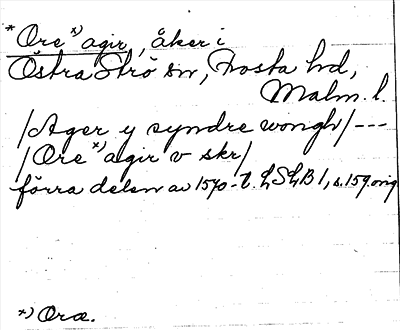 *Ore *) agir, åker i
Östra Strö sn, Frosta hd,
Malm. l.
/Ager y syndre wongh/ ---
/Ore *) agir v skr/
förra delen av 1570-t. LSLB 1, s. 159 orig
*) Oræ.